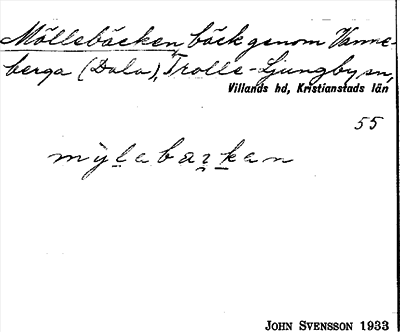 Möllebäcken, bäck genom Vanne-
berga (Dala), Trolle-Ljungby sn,
Villands hd, Kristianstads län
55
mỳlabaʒkan
JOHN SVENSSON 1933